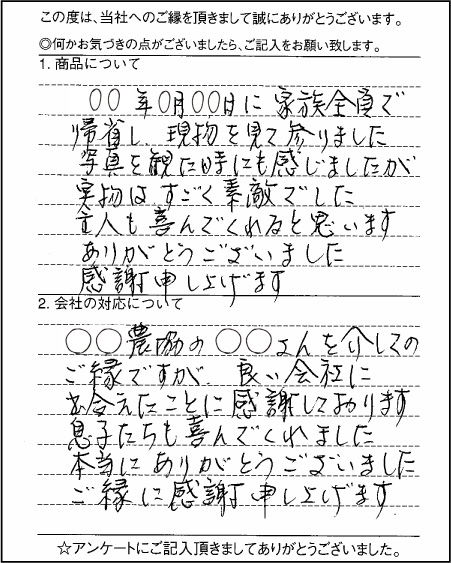 この度は、当社へのご縁を頂きまして誠にありがとうございます。
◎何かお気づきの点がございましたら、ご記入をお願い致します。
1. 商品について
○○年○月○○日に 家族全員で
帰省し、現物を見て参りました
写真を観た時にも感じましたが
実物は、すごく素敵でした
主人も喜んでくれると思います
ありがとうございました
感謝申し上げます
2. 会社の対応について
○○農協の○○さんを介しての
ご縁ですが 良い会社に
お会えたことに感謝しております
息子たちも喜んでくれました
本当にありがとうございました
ご縁に感謝申し上げます
☆アンケートにご記入頂きましてありがとうございました。